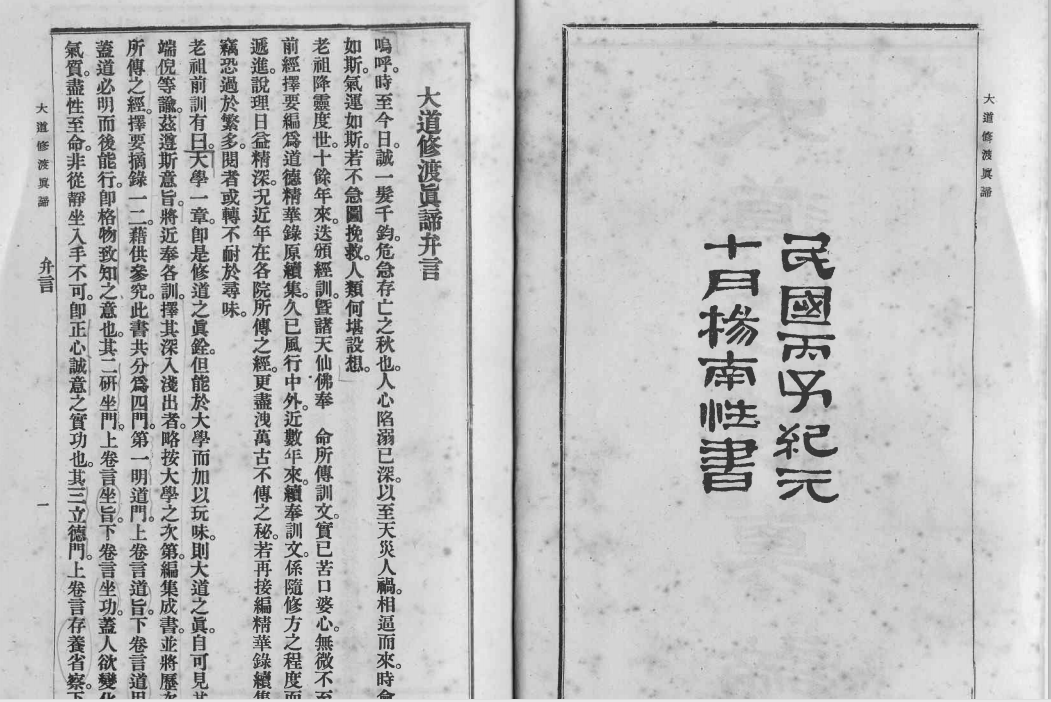 大道修渡眞諦
民國丙子紀元
十月楊南性書
大道修渡眞諦弁言
嗚呼。時至今日。誠一髮千鈞。危急存亡之秋也。人心陷溺已深。以至天災人禍。相逼而來。時會
如斯。氣運如斯。若不急圖挽救。人類何堪設想。
老祖降靈度世。十餘年來。迭頒經訓。曁諸天仙佛奉　命所傳訓文。實已苦口婆心。無微不至
前經擇要編爲道德精華錄原續集。久已風行中外。近數年來。續奉訓文。係隨修方之程度而
遞進。說理日益精深。況近年在各院所傳之經。更盡洩萬古不傳之秘。若再接編精華錄續集
竊恐過於繁多。閱者或轉不耐於尋味。
老祖前訓有曰。大學一章。卽是修道之眞銓。但能於大學而加以玩味。則大道之眞。自可見其
端倪等諭。茲遵斯意旨。將近奉各訓。擇其深入淺出者。略按大學之次第。編集成書。並將歷
所傳之經。擇要摘錄一二。藉供參究。此書共分爲四門。第一明道門。上卷言道旨。下卷言道
蓋道必明而後能行。卽格物致知之意也。其二硏坐門。上卷言坐旨。下卷言坐功。蓋人欲變化
氣質。盡性至命。非從靜坐入手不可。卽正心誠意之實功也。其三立德門。上卷言存養省察。下
大道修渡眞諦　弁言　一